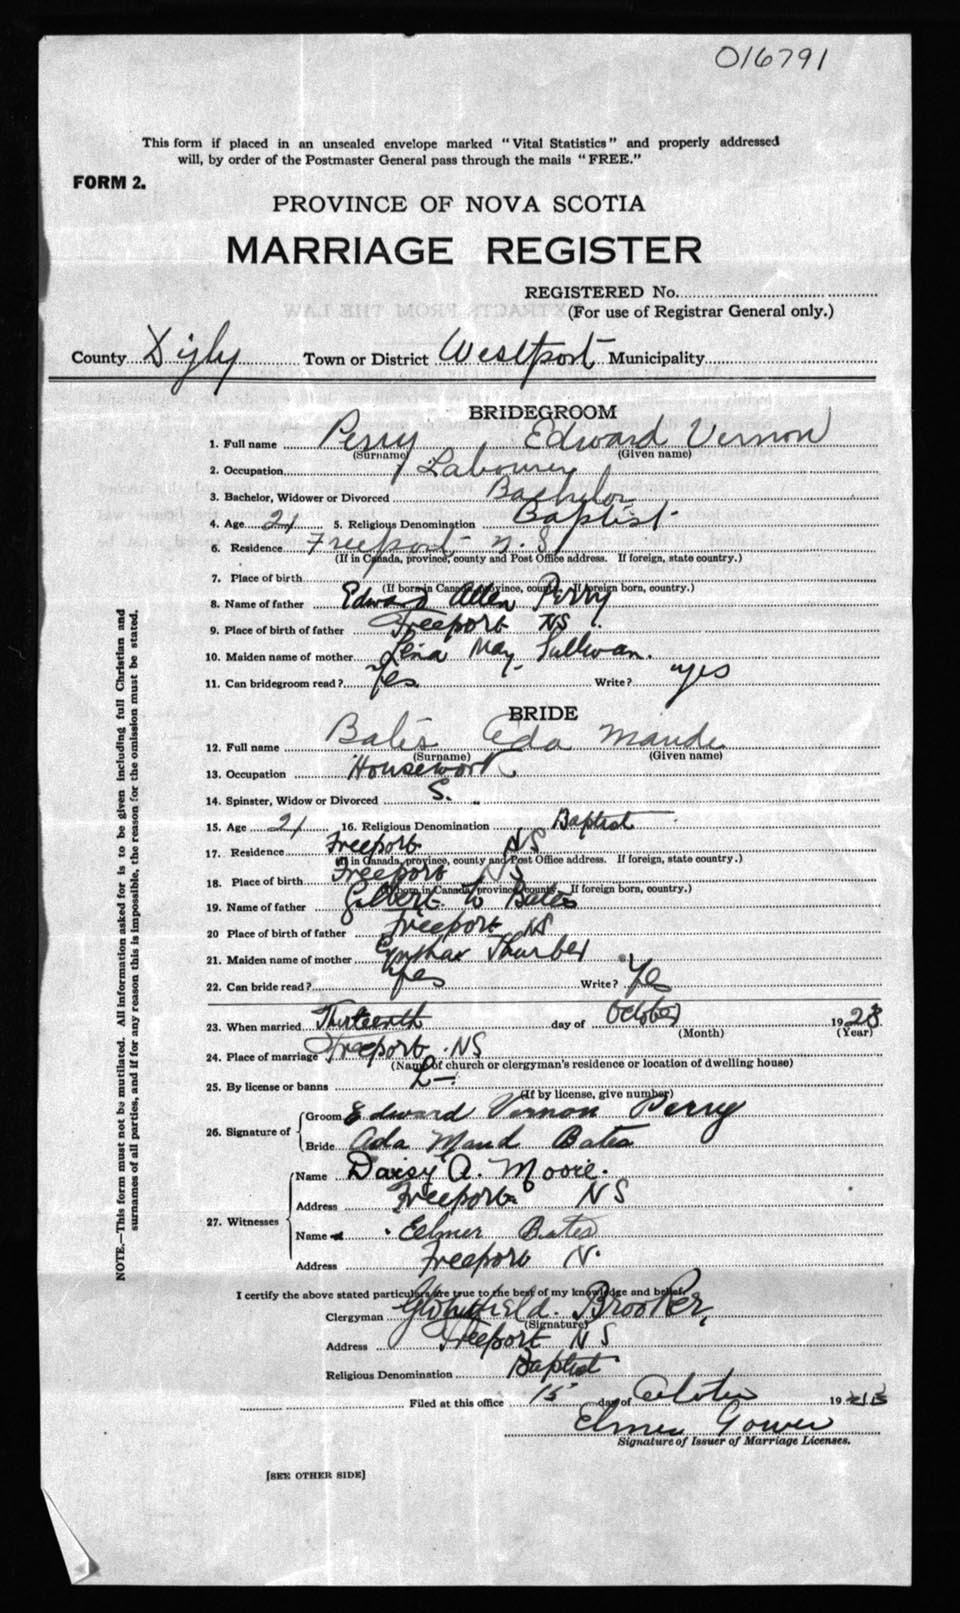 016791
This form if placed in an unsealed envelope marked "Vital Statistics" and properly addressed
will, by order of the Postmaster General pass through the mails "FREE."
FORM 2.
PROVINCE OF NOVA SCOTIA
MARRIAGE REGISTER
REGISTERED No.
(For use of Registrar General only.)
County Digby Town or District Westport Municipality
BRIDEGROOM
1. Full name Perry Edward Vernon
(Surname) (Given name)
2. Occupation Labourer
3. Bachelor, Widower or Divorced Bachelor
4. Age 21 5. Religious Denomination Baptist
6. Residence Freeport N.S.
(If in Canada, province, county and Post Office address. If foreign, state country.)
7. Place of birth
(If born in Canada, province, county. If foreign born, country.)
8. Name of father Edward Allen Perry
9. Place of birth of father Freeport NS.
10. Maiden name of mother Lena May Sullivan.
11. Can bridegroom read? Yes Write? yes
BRIDE
12. Full name Bates Ada Maude
(Surname) (Given name)
13. Occupation Housework
14. Spinster, Widow or Divorced S.
15. Age 21 16. Religious Denomination Baptist
17. Residence Freeport NS
(If in Canada, province, county and Post Office address. If foreign, state country.)
18. Place of birth Freeport NS
(If born in Canada, province, county. If foreign born, country.)
19. Name of father Gilbert W Bates
20 Place of birth of father Freeport NS
21. Maiden name of mother Thurber
22. Can bride read? yes Write? Yes
23. When married Thirteenth day of October 1928
(Month) (Year)
24. Place of marriage Freeport NS
(Name of church or clergyman's residence or location of dwelling house)
25. By license or banns L—
(If by license, give number)
26. Signature of Groom Edward Vernon Perry
Bride Ada Maud Bates
27. Witnesses Name Daisy A. Moore.
Address Freeport NS
Name Elmer Bates
Address Freeport N.
I certify the above stated particulars are true to the best of my knowledge and belief.
Clergyman Brooker,
(Signature)
Address Freeport NS
Religious Denomination Baptist
Filed at this office 15 day of October 19
Elmer Gower
Signature of Issuer of Marriage Licenses.
[SEE OTHER SIDE]
NOTE.—This form must not be mutilated. All information asked for is to be given including full Christian and
surnames of all parties, and if for any reason this is impossible, the reason for the omission must be stated.